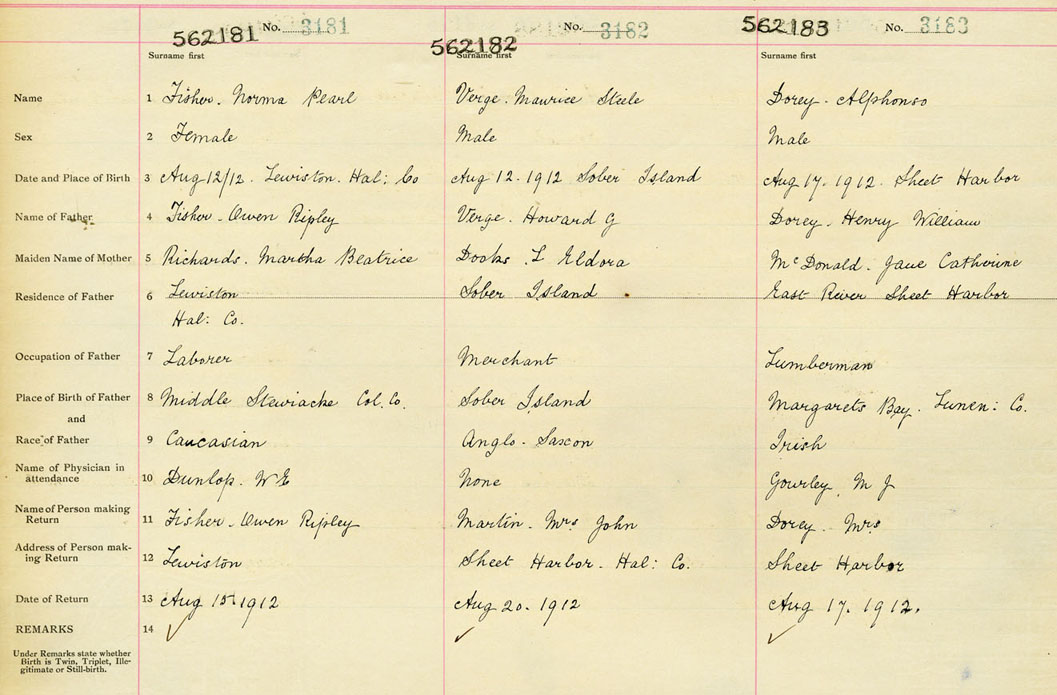 562181 No. 3181 562182 No. 3182 562183 No. 3183
Surname first Surname first Surname first
Name 1 Fisher. Norma Pearl Verge. Maurice Steele Dorey. Alphonso
Sex 2 Female Male Male
Date and Place of Birth 3 Aug 12/12. Lewiston. Hal: Co Aug 12. 1912 Sober Island Aug 17. 1912. Sheet Harbor
Name of Father 4 Fisher. Owen Ripley Verge. Howard G Dorey. Henry William
Maiden Name of Mother 5 Richards. Martha Beatrice Dooks. L Eldora McDonald. Jane Catherine
Residence of Father 6 Lewiston Sober Island East River Sheet Harbor
Hal: Co.
Occupation of Father 7 Laborer Merchant Lumberman
Place of Birth of Father 8 Middle Stewiacke Col. Co. Sober Island Margarets Bay. Lunen: Co.
and
Race of Father 9 Caucasian Anglo-Saxon Irish
Name of Physician in
attendance 10 Dunlop. W E None Gourley. M J
Name of Person making
Return 11 Fisher. Owen Ripley Martin. Mrs John Dorey. Mrs
Address of Person mak-
ing Return 12 Lewiston Sheet Harbor. Hal: Co. Sheet Harbor
Date of Return 13 Aug 15. 1912 Aug 20. 1912 Aug 17. 1912.
REMARKS 14 ✓ ✓ ✓
Under Remarks state whether
Birth is Twin, Triplet, Ille-
gitimate or Still-birth.